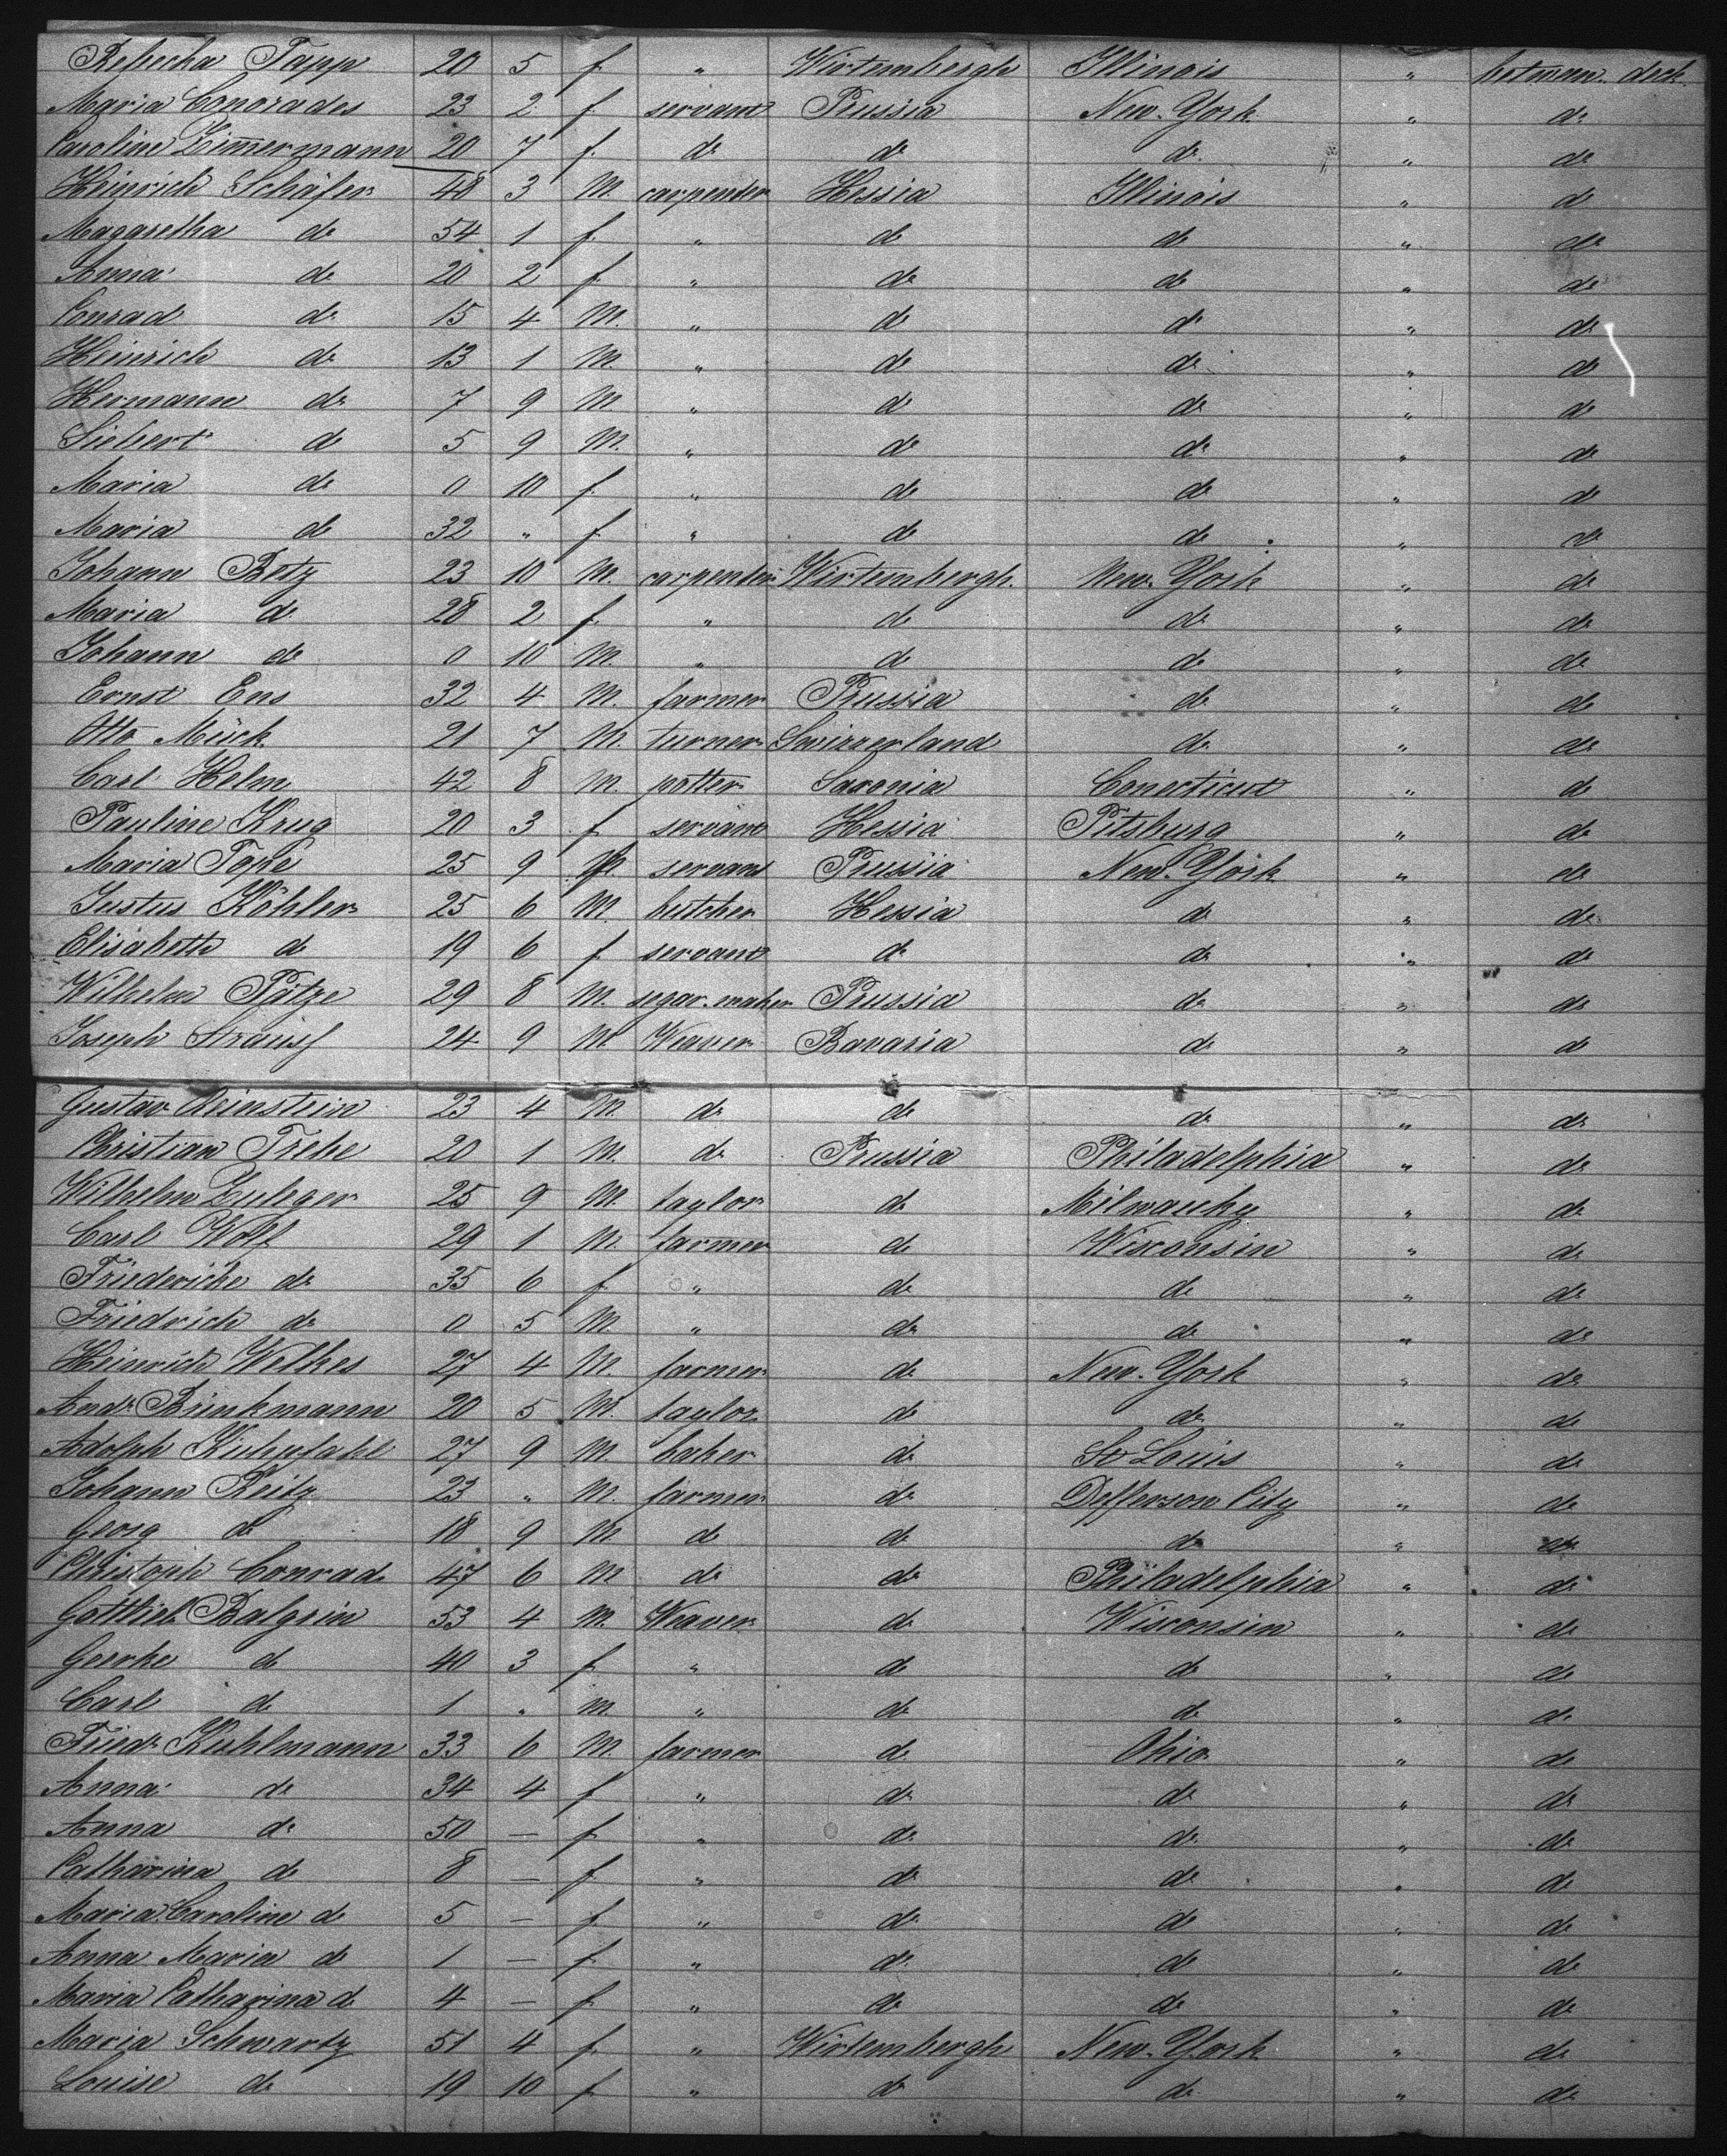 Rebecka Tapp 20 5 f " Wirtembergh Illinois " betwen. deck.
Maria Conorades 23 2 f servant Prussia New-York " do
Caroline Zimermann 20 7 f. do do do. " do
Heinrich Schäfer 48 3 M. carpenter Hessia Illinois " do
Magaretha do 54 1 f. " do do " do
Anna do 20 2 f " do do " do
Conrad do 15 4 M. " do do " do
Heinrich do 13 1 M. " do do " do
Hermann do 7 9 M. " do do " do
Siebert do 5 9 M. " do do " do
Maria do 0 10 f " do do " do
Maria do 32 " f " do do " do
Johann Betz 23 10 M. carpenter Wirtembergh. New-York " do
Maria do 28 2 f. " do do " do
Johann do 0 10 M. " do do " do
Ernst Ens 32 4 M. farmer Prussia do " do
Otto Mück 21 7 M. turner Swizzerland do " do
Carl Helm 42 8 M. potter Saxonia Conecticut " do
Pauline Krug 20 3 f servant Hessia Pitsburg " do
Maria Tope 25 9 f servant Prussia New-York " do
Justus Köhler 25 6 M. butcher Hessia do " do
Elisabeth do 19 6 f servant do do " do
Wilhelm Pätze 29 8 M. segar-maker Prussia do " do
Joseph Strauss 24 9 M Weaver Bavaria do " do
Gustav Reinstein 23 4 M do do do " do
Christian Trebe 20 1 M. do Prussia Philadelphia " do
Wilhelm Zuleger 25 9 M. taylor do Milwauky " do
Carl Wolf 29 1 M. farmer do Wisconsin " do
Friedericke do 35 6 f " do do " do
Friedrich do 0 5 M. " do do " do
Heinrich Welkes 27 4 M. farmer do New-York " do
Andr. Brinkmann 20 5 M. taylor do do " do
Adolph Kuhpfahl 27 9 M. baker do St Louis " do
Johann Reitz 23 " M. farmer do Defferson City " do
Georg do 18 9 M do do do " do
Christoph Conrad 47 6 M do do Philadelphia " do
Gottlieb Balgrin 53 4 M. Weaver do Wisconsin " do
Geerke do 40 3 f " do do " do
Carl do 1 " M " do do " do
Friedr. Kuhlmann 33 6 M. farmer do Ohio " do
Anna do 34 4 f " do do " do
Anna do 50 — f " do do " do
Catharina do 8 — f " do do " do
Maria Caroline do 5 — f " do do " do
Anna Maria do 1 — f " do do " do
Maria Catharina do 4 — f " do do " do
Maria Schwartz 51 4 f " Wirtembergh New-York " do
Louise do 19 10 f " do do " do